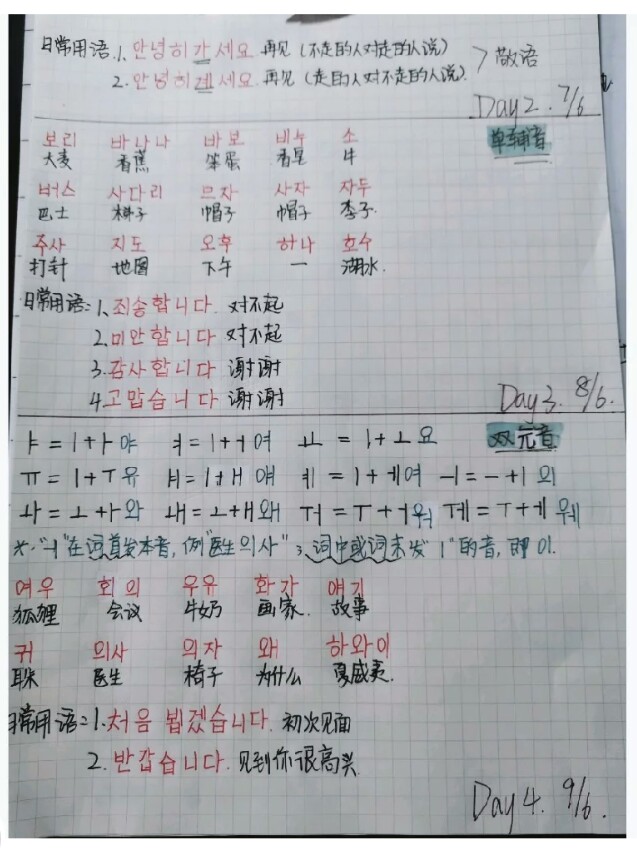 日常用语.1. 안녕히 가세요 再见 (不走的人对走的人说) > 敬语
2. 안녕히 계세요. 再见 (走的人对不走的人说).
Day2. 7/6
单辅音
보리 바나나 바보 비누 소
大麦 香蕉 笨蛋 香皂 牛
버스 사다리 모자 사자 자두
巴士 梯子 帽子 帽子 李子.
주사 지도 오후 하나 호수
打针 地图 下午 一 湖水.
日常用语: 1. 죄송합니다. 对不起
2. 미안합니다. 对不起
3. 감사합니다 谢谢
4. 고맙습니다 谢谢
Day3. 8/6.
ㅑ = ㅣ+ㅏ 야 ㅕ = ㅣ+ㅓ 여 ㅛ = ㅣ+ㅗ 요 双元音
ㅠ = ㅣ+ㅜ 유 ㅒ = ㅣ+ㅐ 얘 ㅖ = ㅣ+ㅔ 여 ㅢ = ㅡ+ㅣ 의
ㅘ = ㅗ+ㅏ 와 ㅙ = ㅗ+ㅐ 왜 ㅝ = ㅜ+ㅓ 워 ㅞ = ㅜ+ㅔ 웨
*."ㅢ"在词首发本音, 例"医生 의사"; 词中或词末发"ㅣ"的音, 即 이.
여우 회의 우유 화가 얘기
狐狸 会议 牛奶 画家. 故事
귀 의사 의자 왜 하와이
耳朵 医生 椅子 为什么 夏威夷.
日常用语: 1. 처음 뵙겠습니다. 初次见面
2. 반갑습니다. 见到你很高兴.
Day4. 9/6.